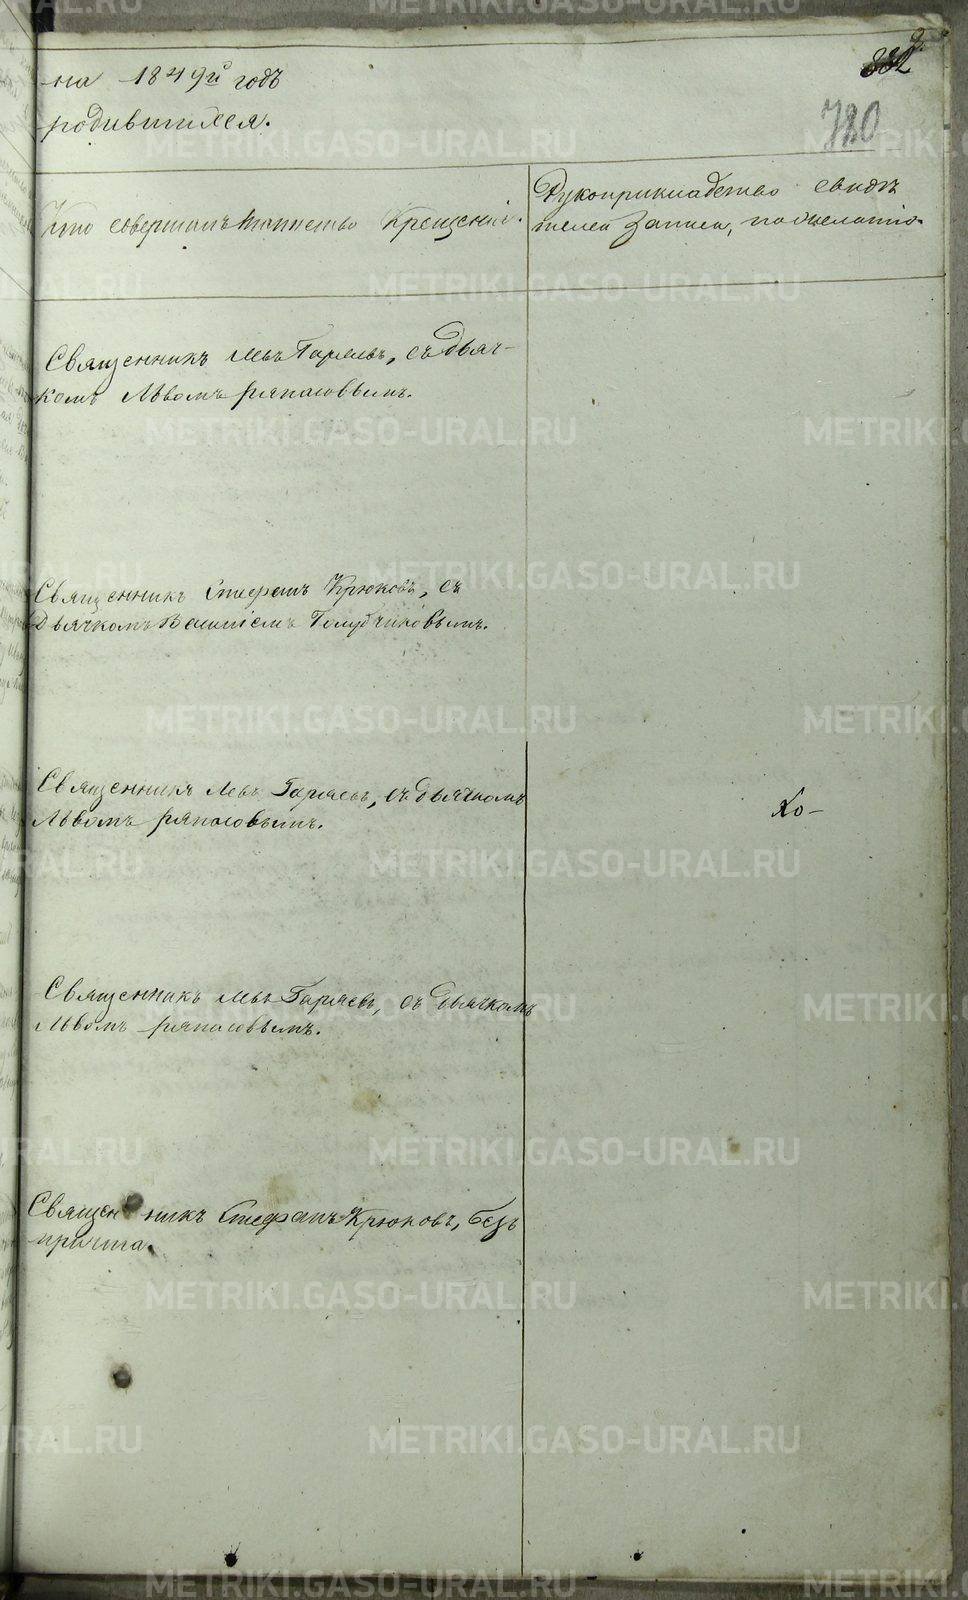 2.
882
780
на 1849й годъ
родившихся.
Кто совершалъ таинство Крещенія.
Рукоприкладство свидѣ-
телей записи, по желанію.
Священникъ Левъ Гаряевъ, съ дьяч-
комъ Львомъ Ряпасовымъ.
Священникъ Стефанъ Крюковъ, съ
Дьячкомъ Василіемъ Голубчиковымъ.
Священникъ Левъ Гаряевъ, съ дьячкомъ
Львомъ Ряпасовымъ.
Хо-
Священникъ Левъ Гаряевъ, съ дьячкомъ
Львомъ Ряпасовымъ.
Священникъ Стефанъ Крюковъ, безъ
причта.
METRIKI.GASO-URAL.RU